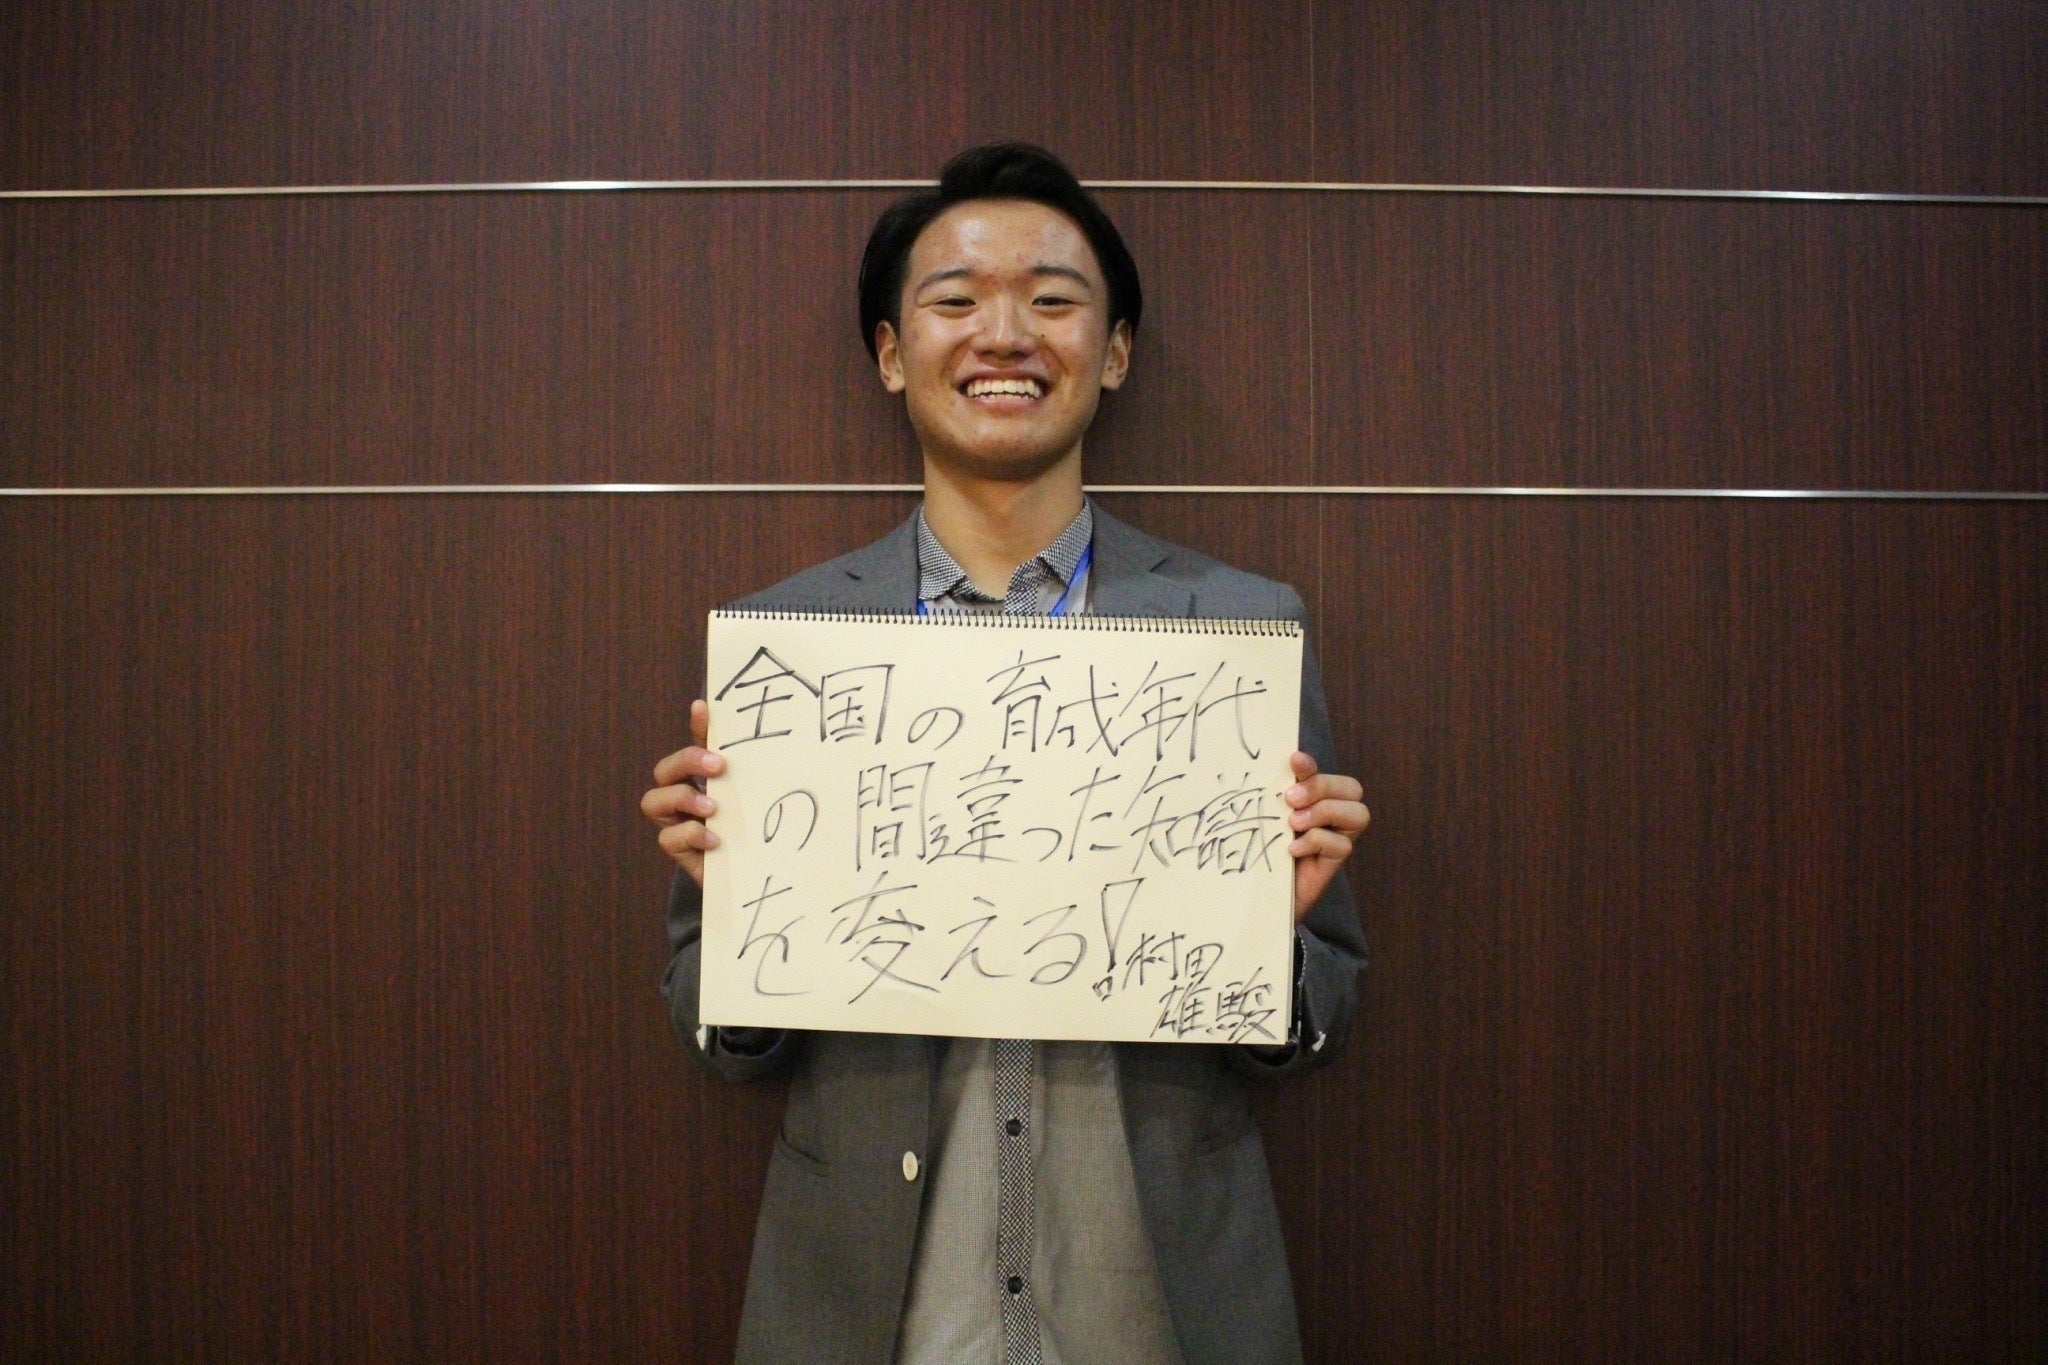 全国の育成年代
の間違った知識
を変える!
村田
雄駿